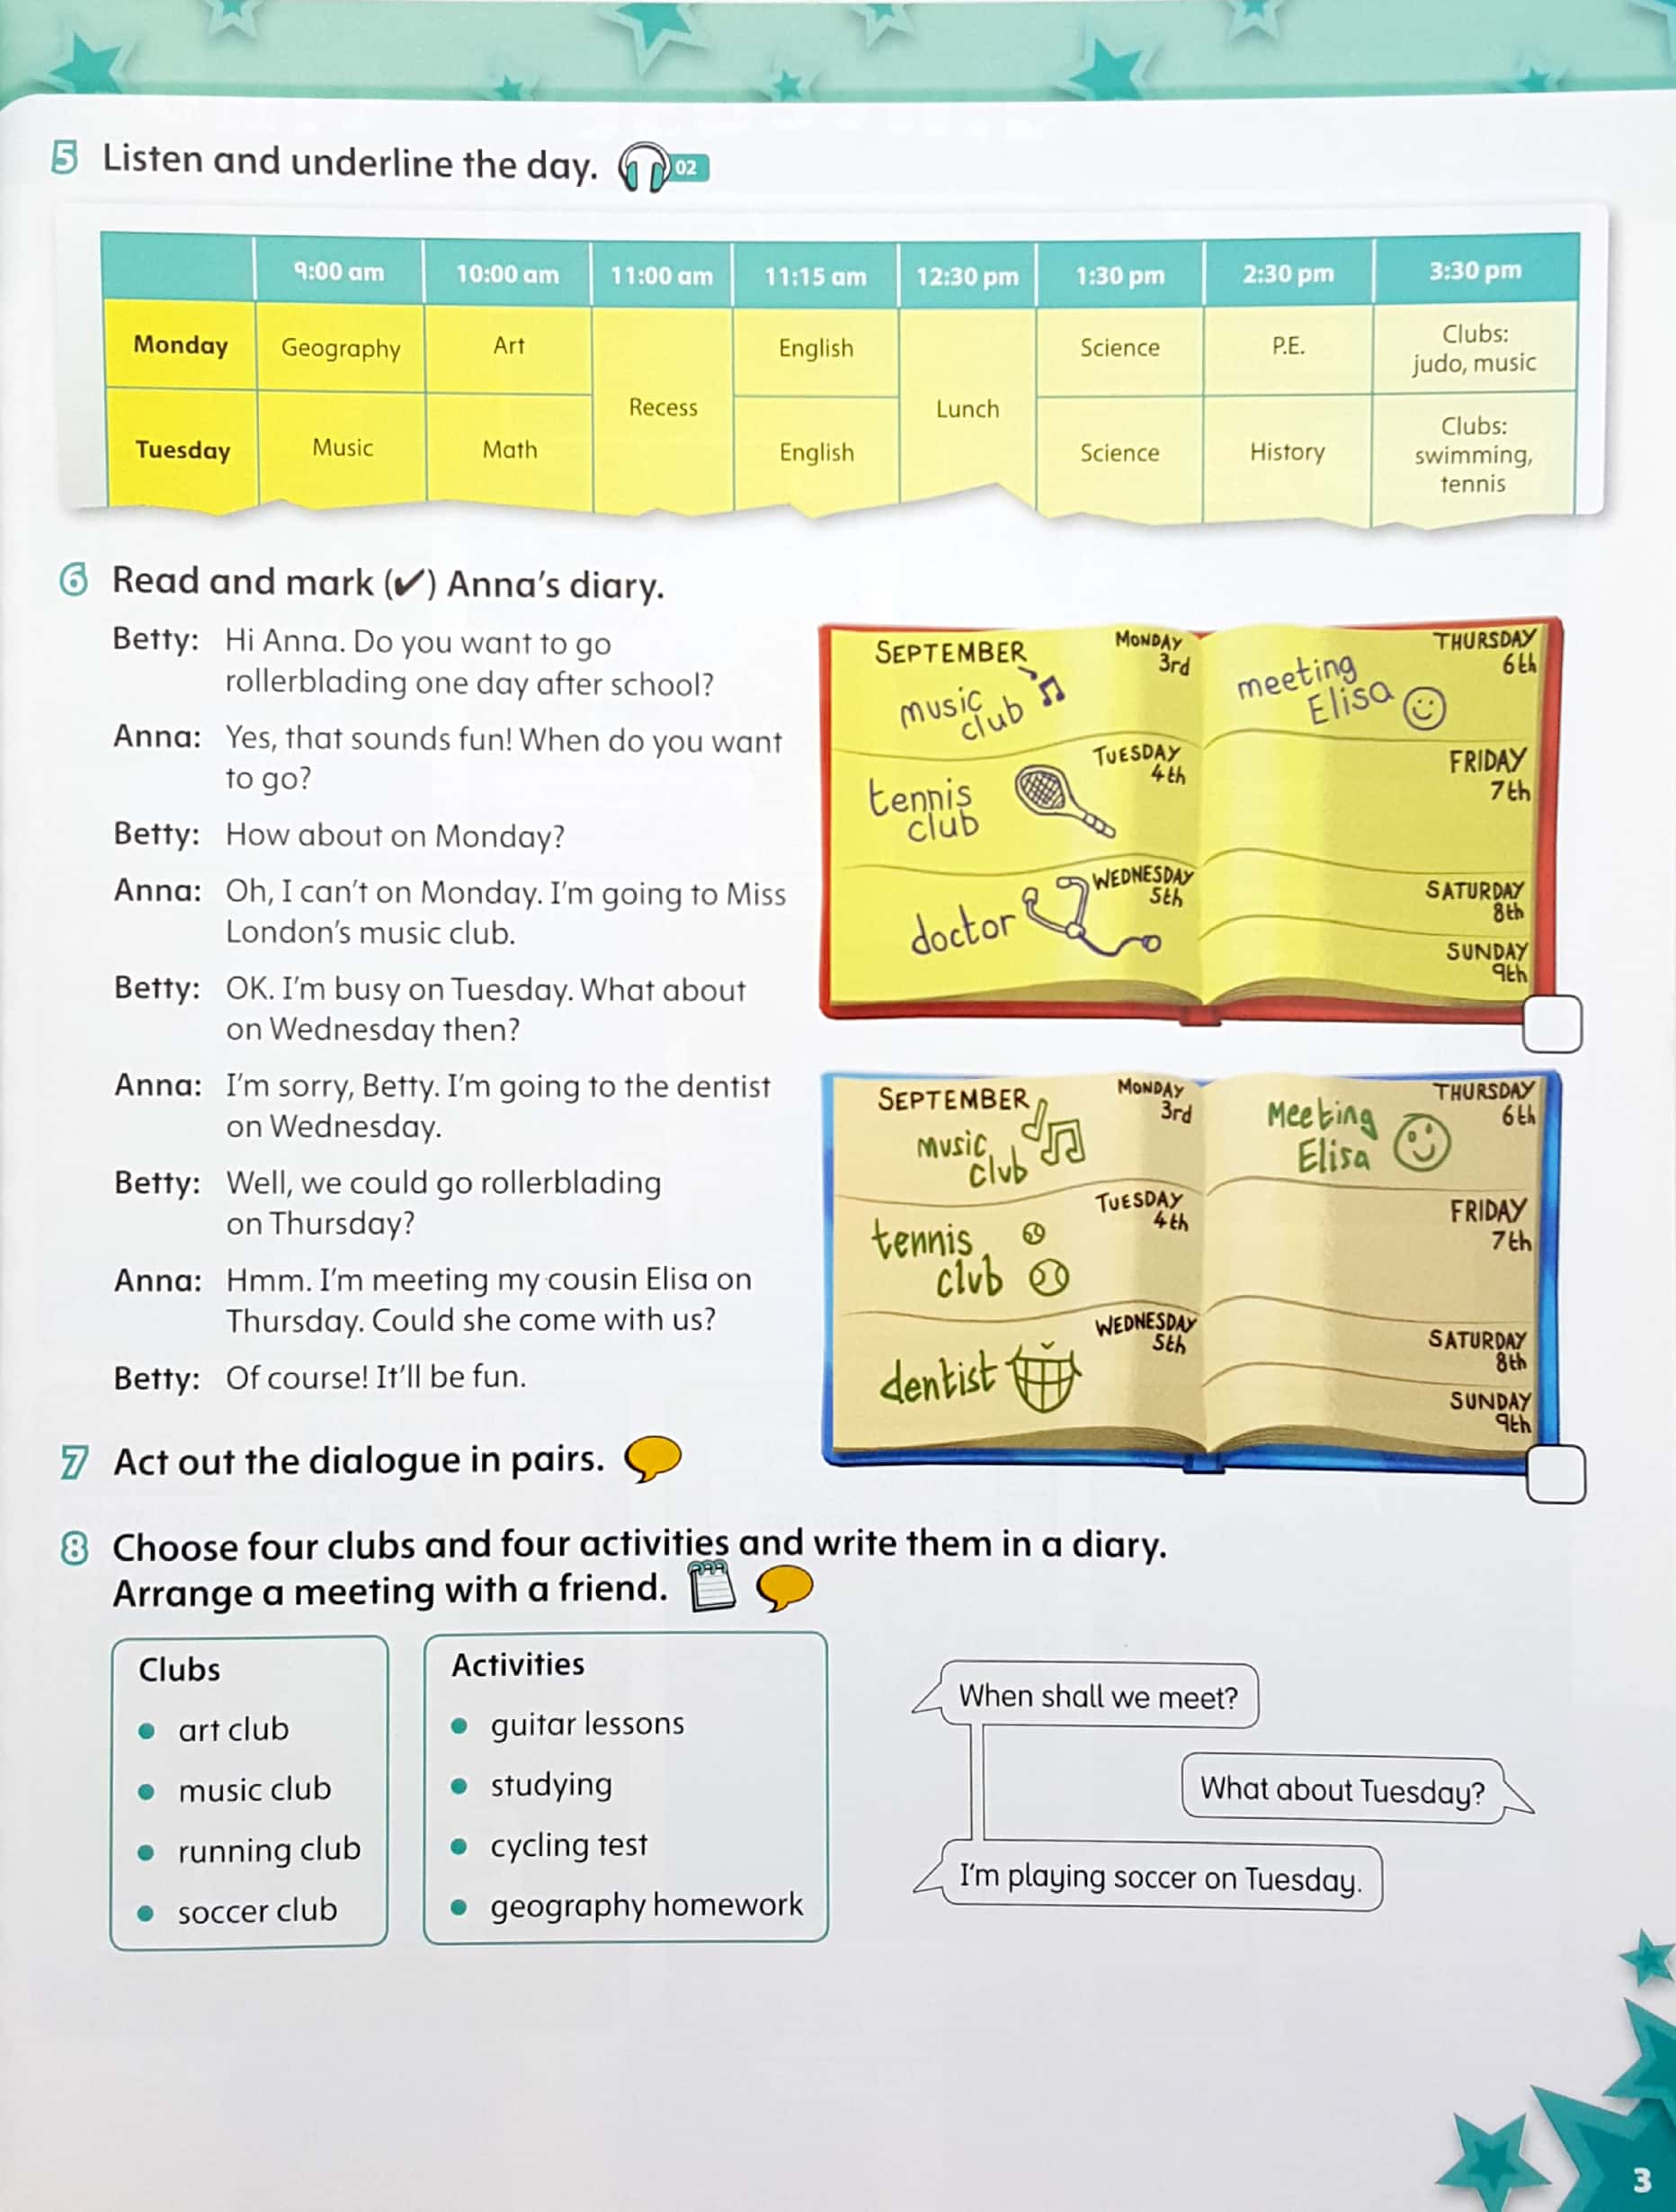 5 Listen and underline the day. 02
9:00 am 10:00 am 11:00 am 11:15 am 12:30 pm 1:30 pm 2:30 pm 3:30 pm
Monday Geography Art Recess English Lunch Science P.E. Clubs:
judo, music
Tuesday Music Math English Science History Clubs:
swimming,
tennis
6 Read and mark (✔) Anna's diary.
Betty: Hi Anna. Do you want to go
rollerblading one day after school?
Anna: Yes, that sounds fun! When do you want
to go?
Betty: How about on Monday?
Anna: Oh, I can't on Monday. I'm going to Miss
London's music club.
Betty: OK. I'm busy on Tuesday. What about
on Wednesday then?
Anna: I'm sorry, Betty. I'm going to the dentist
on Wednesday.
Betty: Well, we could go rollerblading
on Thursday?
Anna: Hmm. I'm meeting my cousin Elisa on
Thursday. Could she come with us?
Betty: Of course! It'll be fun.
SEPTEMBER
MONDAY
3rd
music
club
TUESDAY
4th
tennis
club
WEDNESDAY
5th
doctor
THURSDAY
6th
meeting
Elisa
FRIDAY
7th
SATURDAY
8th
SUNDAY
9th
SEPTEMBER
MONDAY
3rd
music
club
TUESDAY
4th
tennis
club
WEDNESDAY
5th
dentist
THURSDAY
6th
Meeting
Elisa
FRIDAY
7th
SATURDAY
8th
SUNDAY
9th
7 Act out the dialogue in pairs.
8 Choose four clubs and four activities and write them in a diary.
Arrange a meeting with a friend.
Clubs
• art club
• music club
• running club
• soccer club
Activities
• guitar lessons
• studying
• cycling test
• geography homework
When shall we meet?
What about Tuesday?
I'm playing soccer on Tuesday.
3